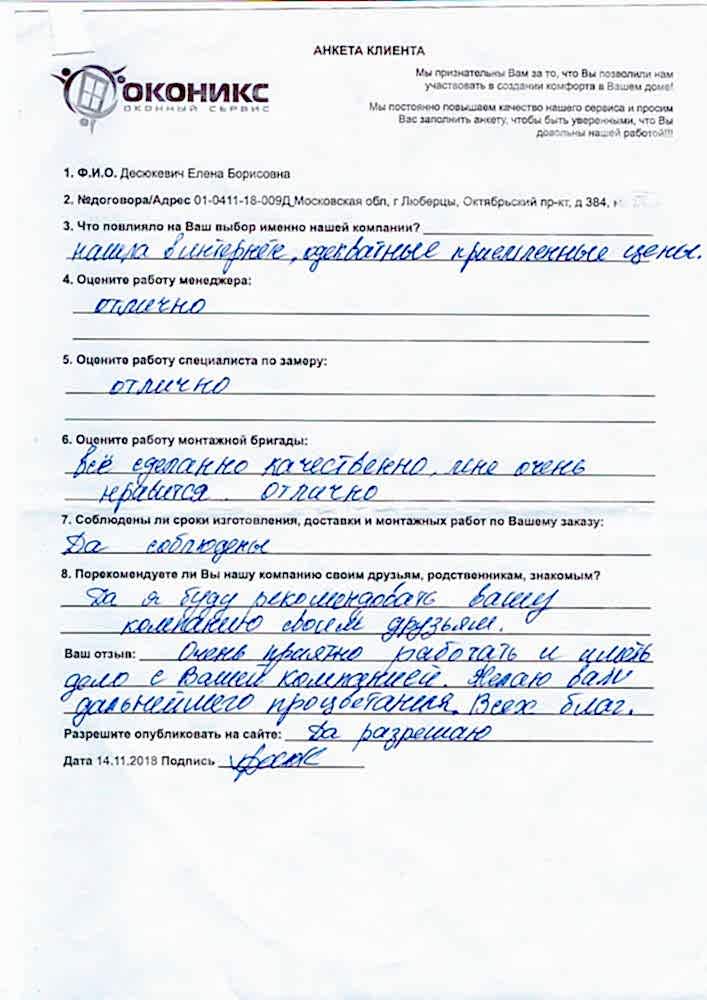 АНКЕТА КЛИЕНТА
ОКОНИКС
ОКОННЫЙ СЕРВИС
Мы признательны Вам за то, что Вы позволили нам
участвовать в создании комфорта в Вашем доме!
Мы постоянно повышаем качество нашего сервиса и просим
Вас заполнить анкету, чтобы быть уверенными, что Вы
довольны нашей работой!!!
1. Ф.И.О. Десюкевич Елена Борисовна
2. №договора/Адрес 01-0411-18-009Д Московская обл, г Люберцы, Октябрьский пр-кт, д 384,
3. Что повлияло на Ваш выбор именно нашей компании?
нашла в интернете, адекватные приемленные цены.
4. Оцените работу менеджера:
отлично
5. Оцените работу специалиста по замеру:
отлично
6. Оцените работу монтажной бригады:
всё сделанно качественно, мне очень
нравится. отлично
7. Соблюдены ли сроки изготовления, доставки и монтажных работ по Вашему заказу:
Да соблюдены
8. Порекомендуете ли Вы нашу компанию своим друзьям, родственникам, знакомым?
Да я буду рекомендовать вашу
компанию своим друзьям.
Ваш отзыв: Очень приятно работать и иметь
дело с Вашей компанией. Желаю вам
дальнейшего процветания. Всех благ.
Разрешите опубликовать на сайте: Да разрешаю
Дата 14.11.2018 Подпись